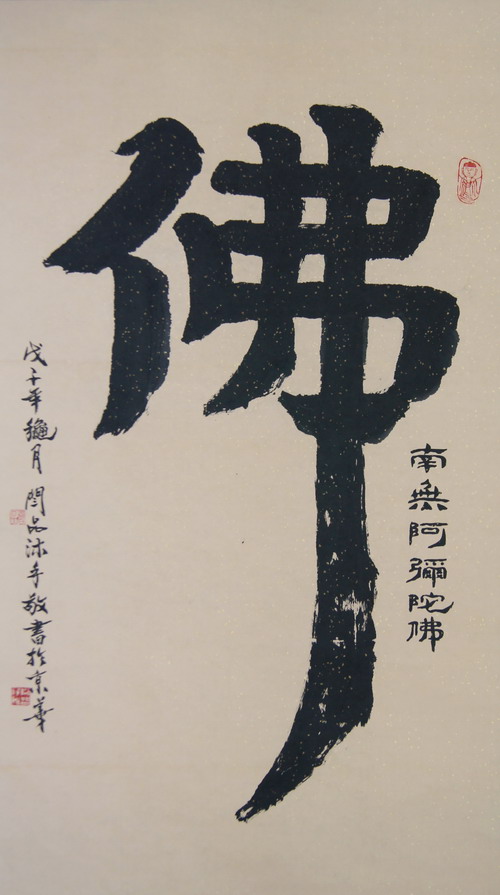 佛
南無阿彌陀佛
戊子年龝月 閆品沐手敬書於京華